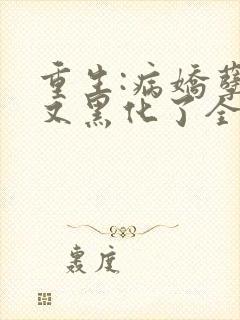 重生:病娇孽
又黑化了全
裹度